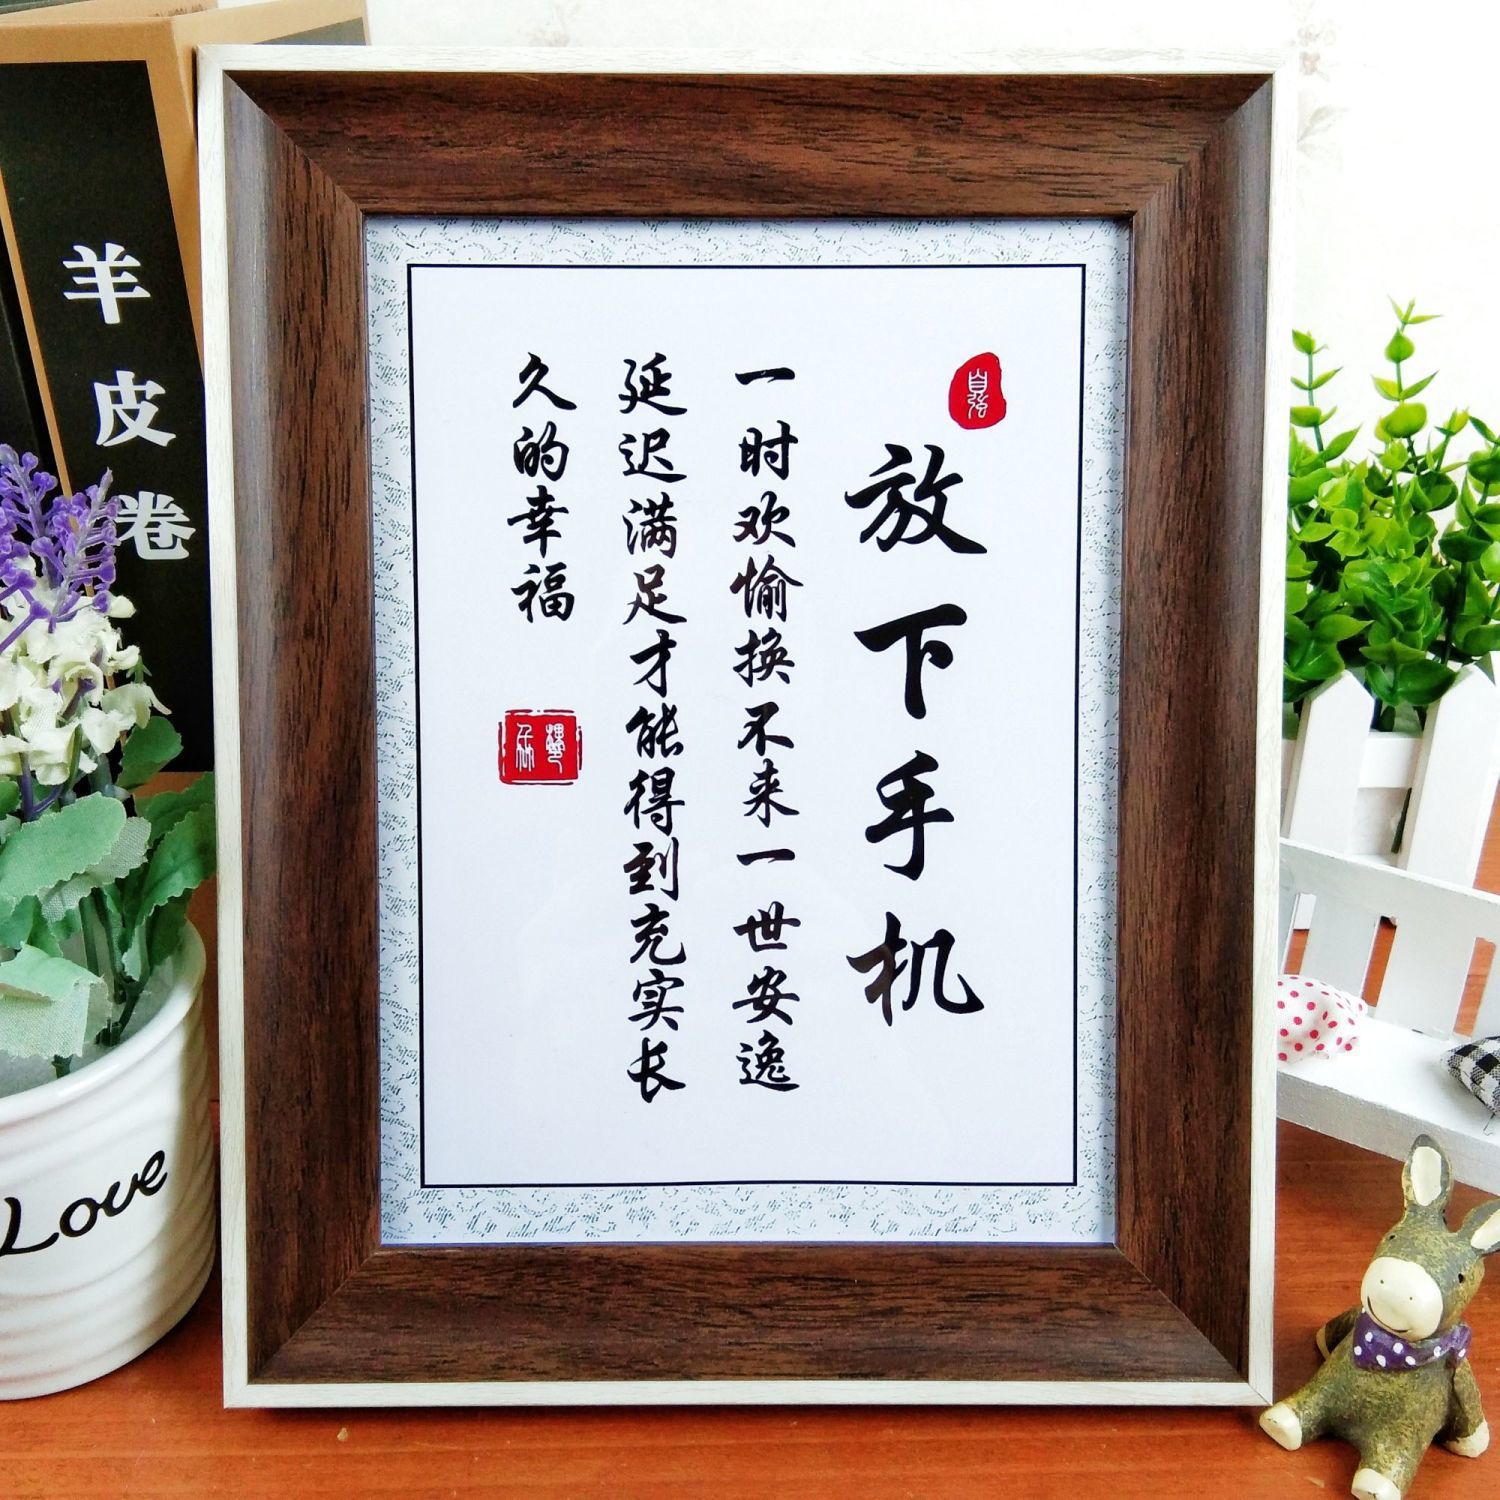 放下手机
一时欢愉换不来一世安逸
延迟满足才能得到充实长
久的幸福
自强
羊皮卷
Love